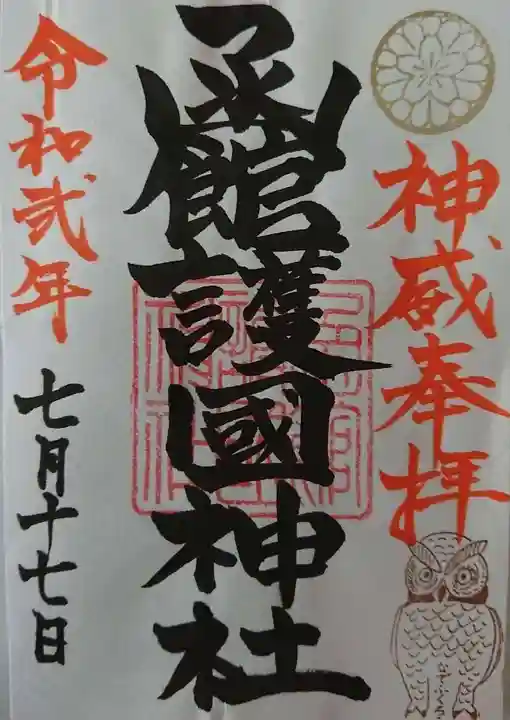 神威奉拝
函館護國神社
令和弐年
七月十七日